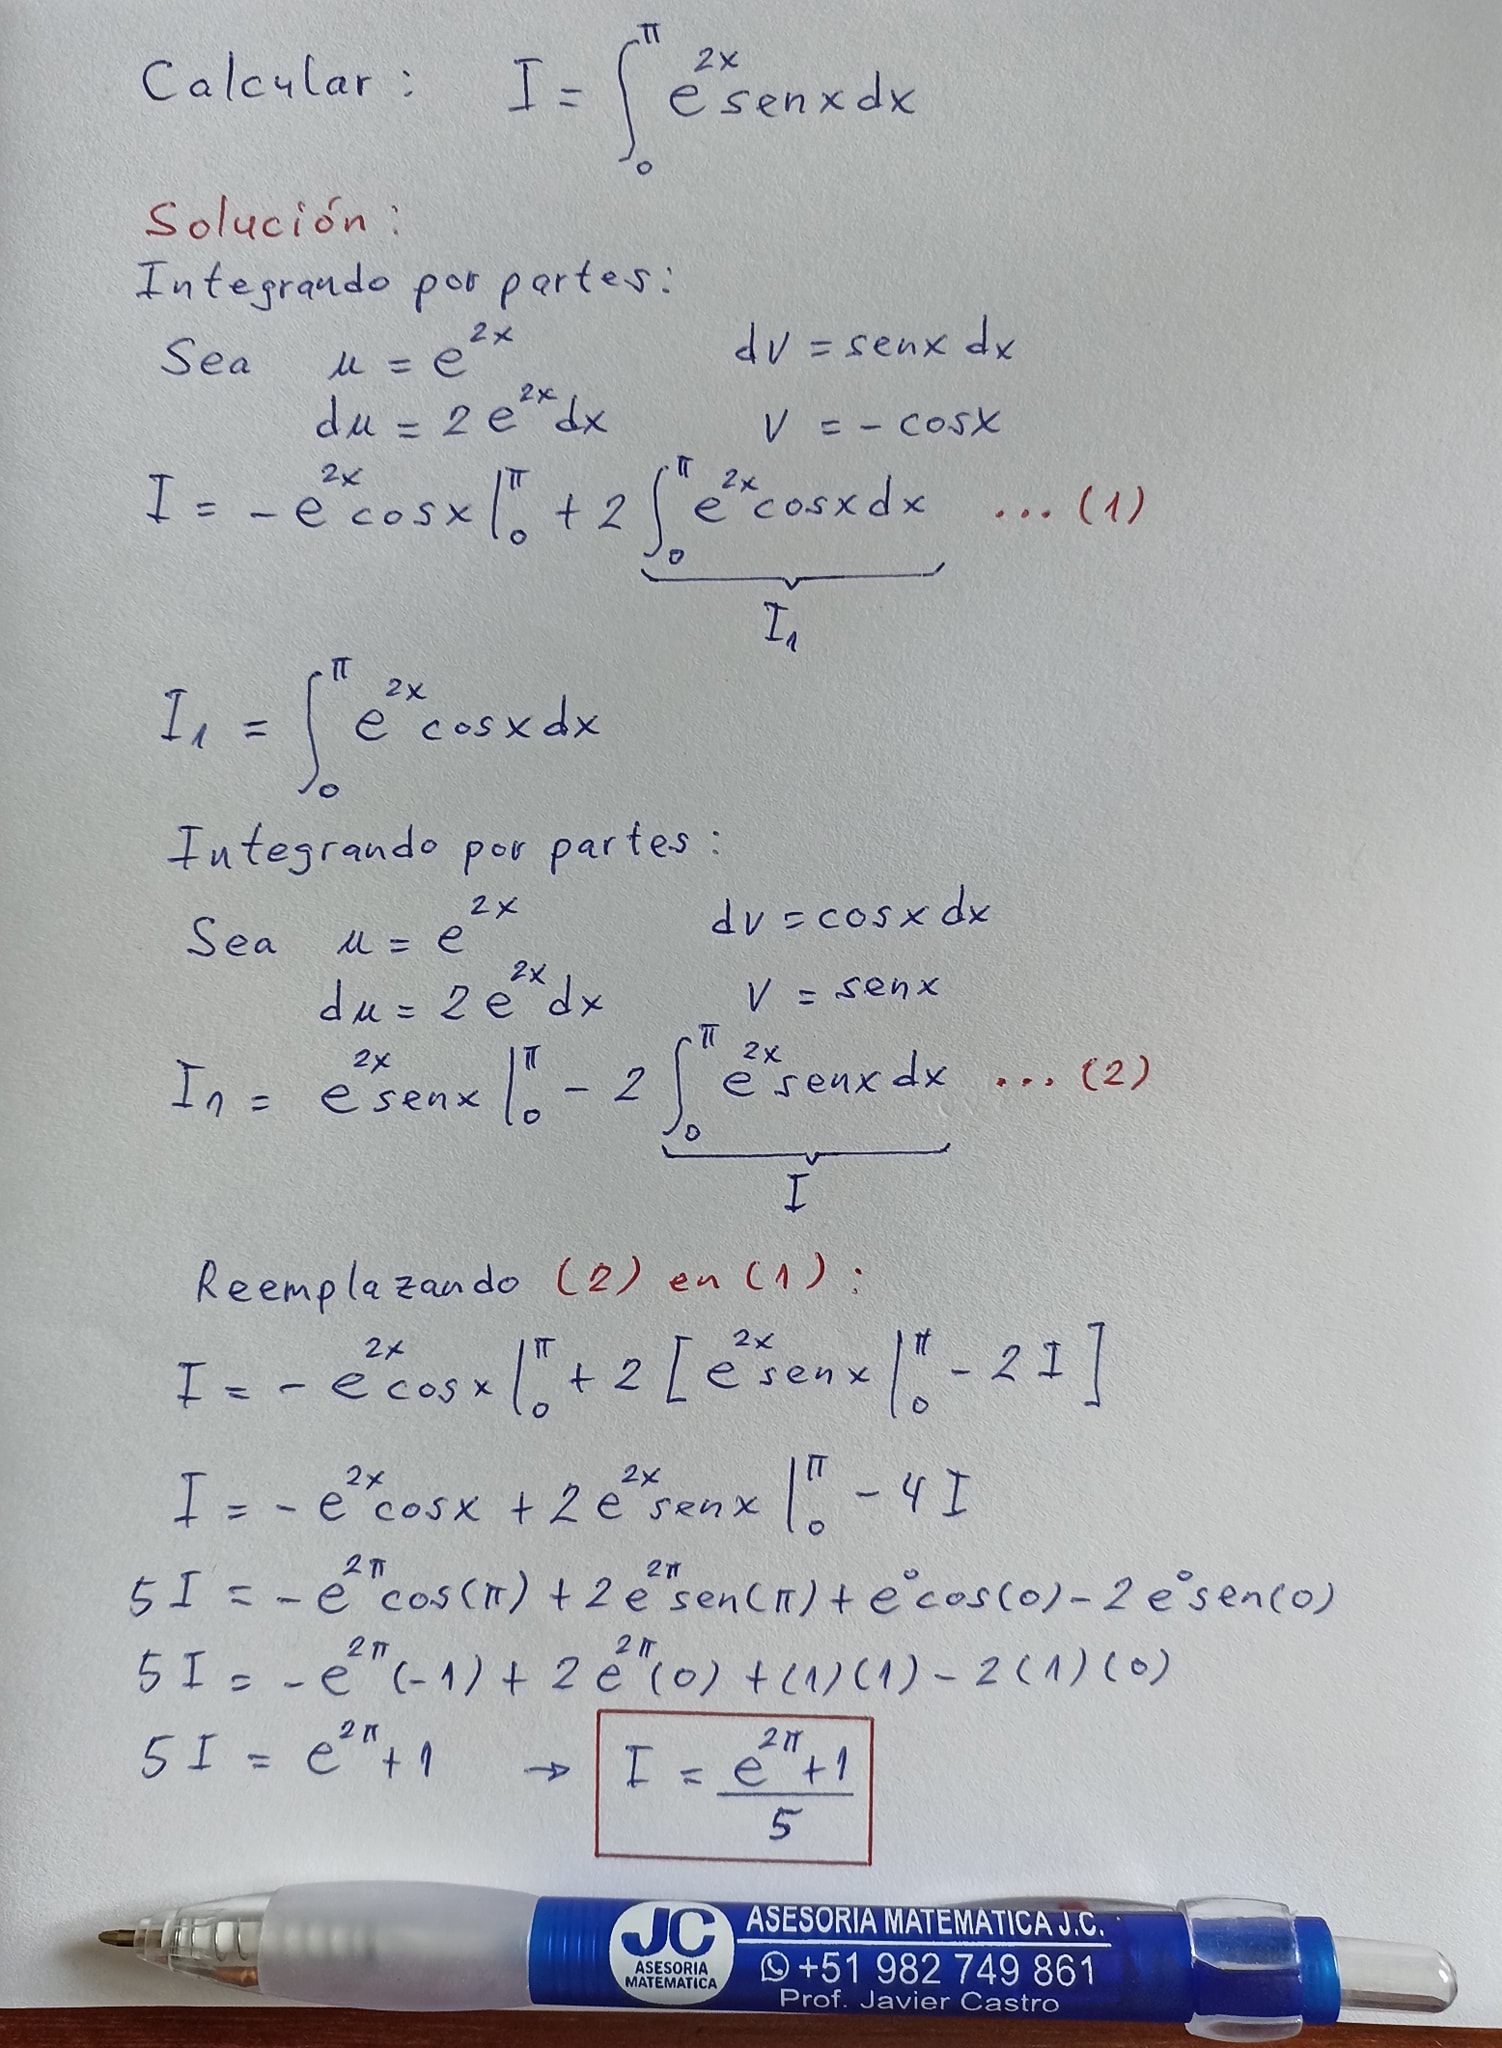 Calcular: I = ∫₀^π e^{2x} sen x dx
Solución:
Integrando por partes:
Sea μ = e^{2x} dv = sen x dx
dμ = 2e^{2x} dx v = - cos x
I = - e^{2x} cos x |₀^π + 2 ∫₀^π e^{2x} cos x dx ... (1)
I₁
I₁ = ∫₀^π e^{2x} cos x dx
Integrando por partes:
Sea μ = e^{2x} dv = cos x dx
dμ = 2e^{2x} dx v = sen x
I₁ = e^{2x} sen x |₀^π - 2 ∫₀^π e^{2x} sen x dx ... (2)
I
Reemplazando (2) en (1):
I = - e^{2x} cos x |₀^π + 2 [ e^{2x} sen x |₀^π - 2I ]
I = - e^{2x} cos x + 2e^{2x} sen x |₀^π - 4I
5I = - e^{2π} cos(π) + 2e^{2π} sen(π) + e⁰ cos(0) - 2e⁰ sen(0)
5I = - e^{2π} (-1) + 2e^{2π} (0) + (1)(1) - 2(1)(0)
5I = e^{2π} + 1 → I = (e^{2π} + 1)/5
JC
ASESORIA
MATEMATICA
ASESORIA MATEMATICA J.C.
+51 982 749 861
Prof. Javier Castro